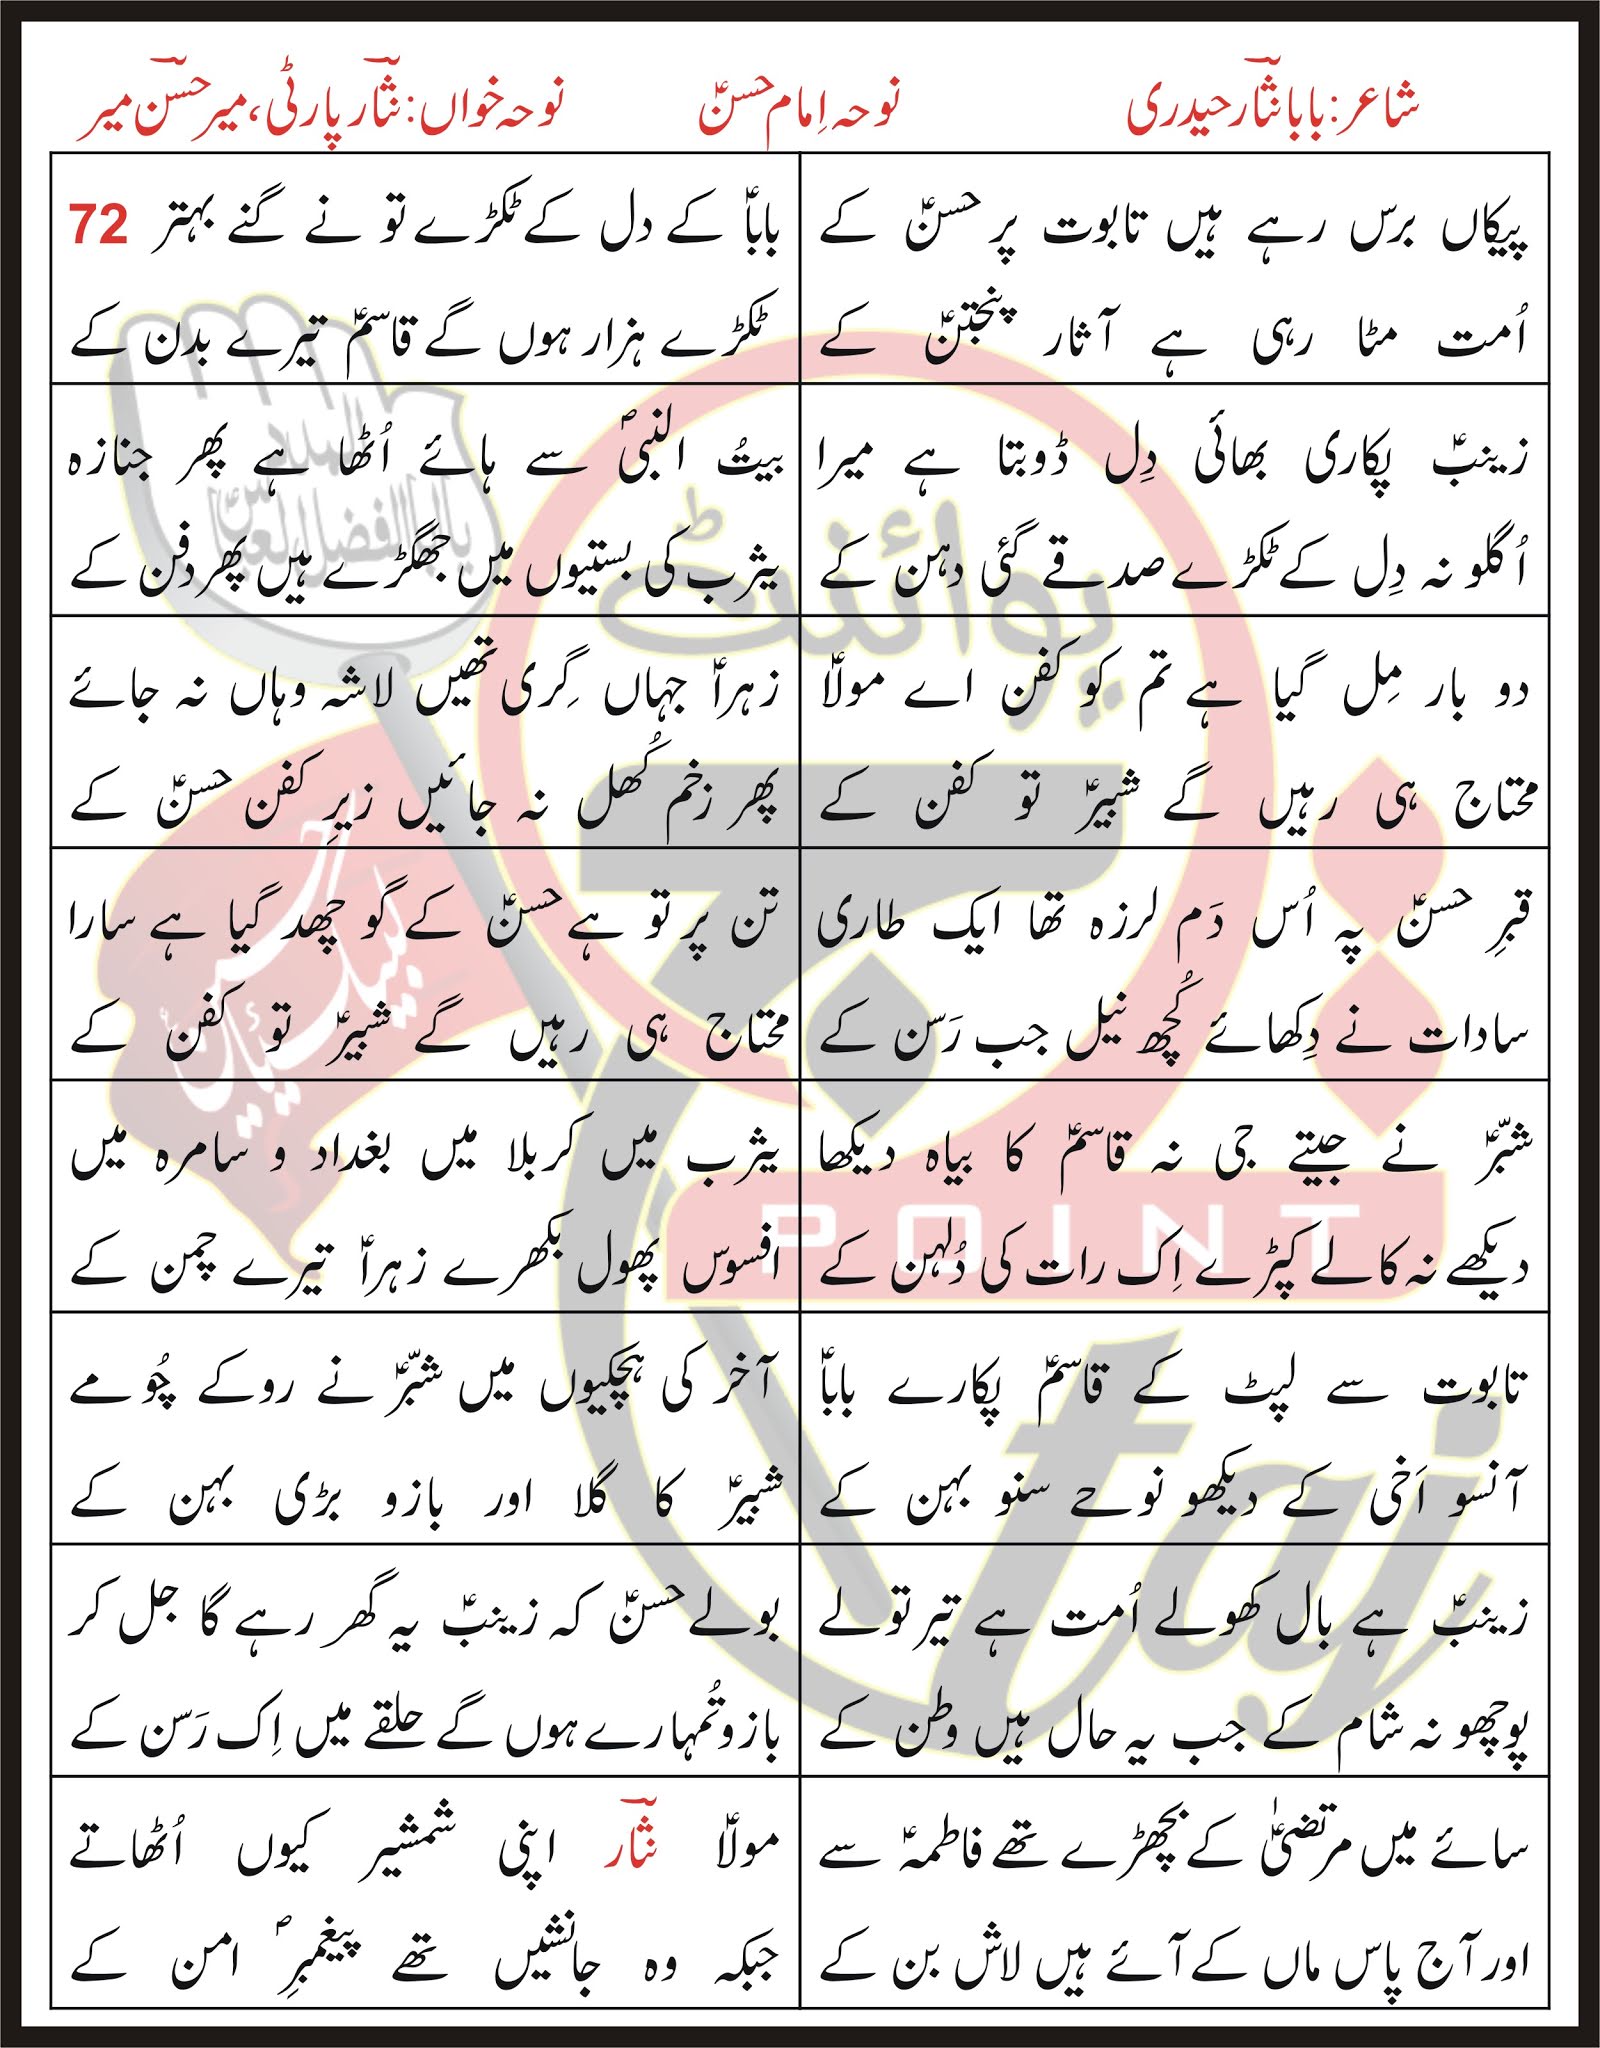 شاعر: بابا نثارؔ حیدری
نوحہ اِمام حسنؑ
نوحہ خواں: نثارؔ پارٹی، میر حسنؔ میر
پیکاں برس رہے ہیں تابوت پر حسنؑ کے
اُمت مٹا رہی ہے آثار پنجتنؑ کے
باباؑ کے دل کے ٹکڑے تو نے گنے بہتر 72
ٹکڑے ہزار ہوں گے قاسمؑ تیرے بدن کے
زینبؑ پکاری بھائی دِل ڈوبتا ہے میرا
اُگلو نہ دِل کے ٹکڑے صدقے گئی دہن کے
بیتُ النبیؐ سے ہائے اُٹھا ہے پھر جنازہ
یثرب کی بستیوں میں جھگڑے ہیں پھر دفن کے
دو بار مِل گیا ہے تم کو کفن اے مولاؑ
محتاج ہی رہیں گے شبیرؑ تو کفن کے
زہراؑ جہاں گِری تھیں لاشہ وہاں نہ جائے
پھر زخم کُھل نہ جائیں زیرِ کفن حسنؑ کے
قبرِ حسنؑ پہ اُس دَم لرزہ تھا ایک طاری
سادات نے دِکھائے کُچھ نیل جب رَسن کے
تن پر تو ہے حسنؑ کے گو چھد گیا ہے سارا
محتاج ہی رہیں گے شبیرؑ تو کفن کے
شبّرؑ نے جیتے جی نہ قاسمؑ کا بیاہ دیکھا
دیکھے نہ کالے کپڑے اِک رات کی دُلہن کے
یثرب میں کربلا میں بغداد و سامرہ میں
افسوس پھول بکھرے زہراؑ تیرے چمن کے
تابوت سے لپٹ کے قاسمؑ پکارے باباؑ
آنسو اَخی کے دیکھو نوحے سنو بہن کے
آخر کی ہچکیوں میں شبّرؑ نے روکے چُومے
شبیرؑ کا گلا اور بازو بڑی بہن کے
زینبؑ ہے بال کھولے اُمت ہے تیر تولے
پوچھو نہ شام کے جب یہ حال ہیں وطن کے
بولے حسنؑ کہ زینبؑ یہ گھر رہے گا جل کر
بازو تُمہارے ہوں گے حلقے میں اِک رَسن کے
سائے میں مرتضیٰؑ کے بچھڑے تھے فاطمہؑ سے
اور آج پاس ماں کے آئے ہیں لاش بن کے
مولاؑ نثارؔ اپنی شمشیر کیوں اُٹھاتے
جبکہ وہ جانشیں تھے پیغمبرِؐ امن کے
پوائنٹ
POINT
taj